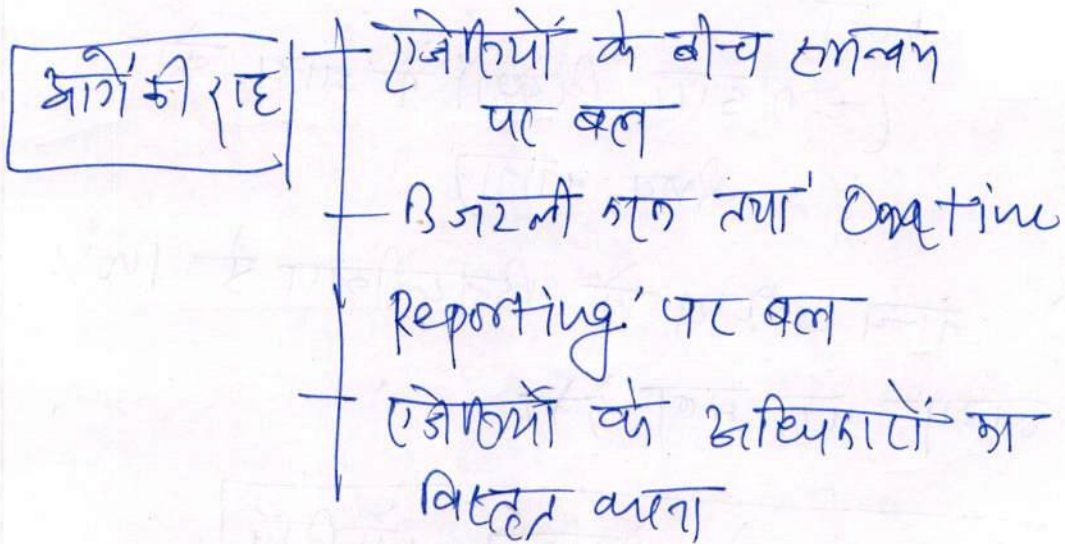 आगे की राह
एजेंसियों के बीच समन्वय
पर बल
तथा time
Reporting पर बल
एजेंसियों के अधिकारों का
विस्तृत करना